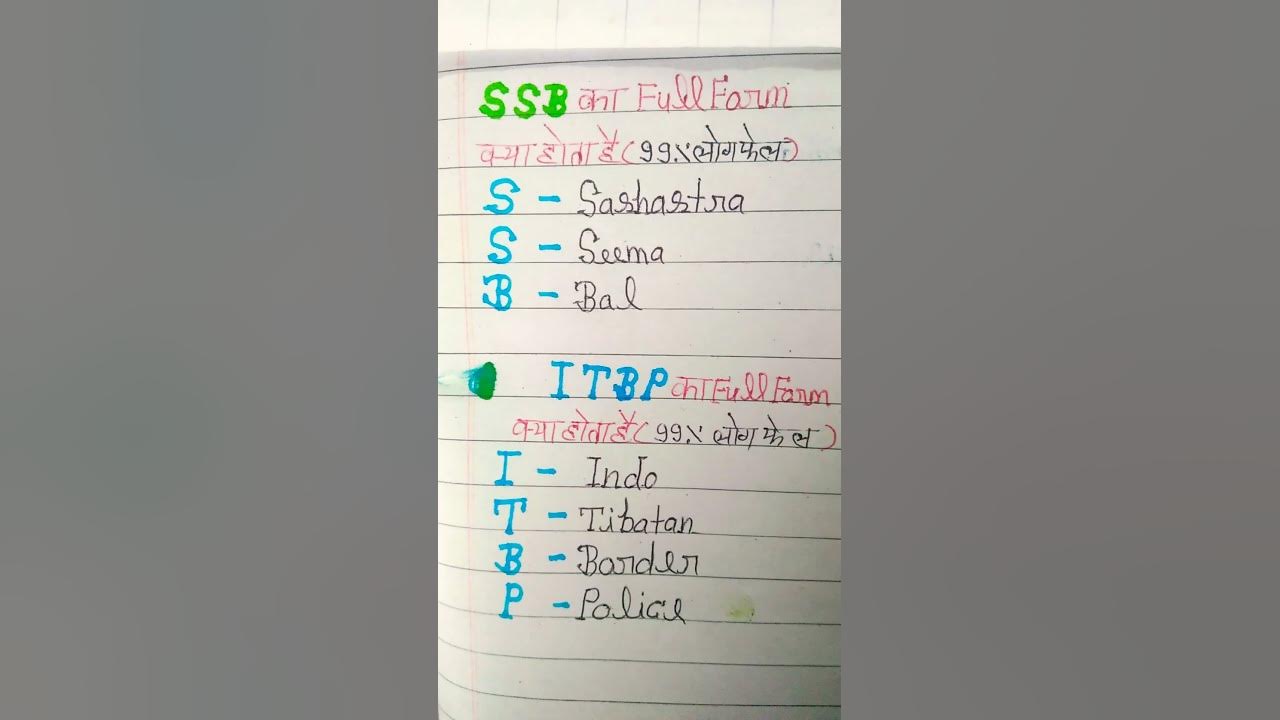 SSB का Full Farm
क्या होता है (99% लोग फेल)
S - Sashastra
S - Seema
B - Bal
ITBP का Full Farm
क्या होता है (99% लोग फेल)
I - Indo
T - Tibatan
B - Border
P - Police